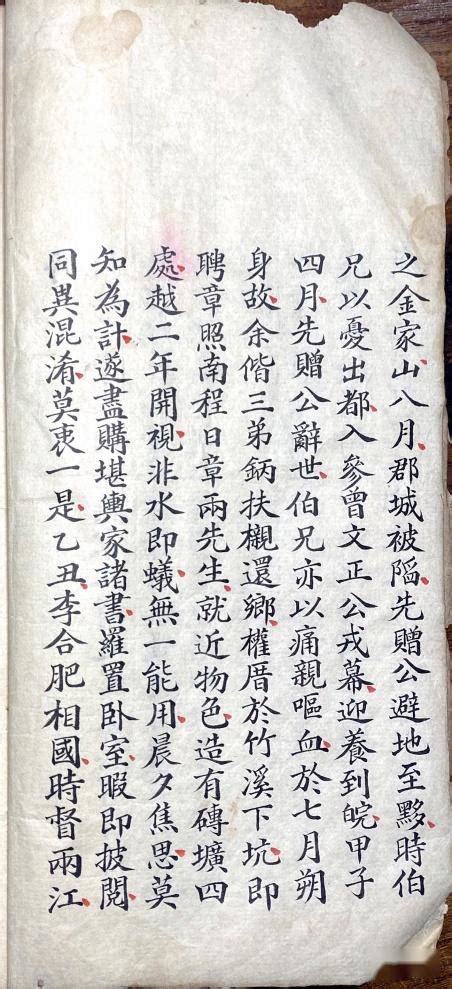 之金家山八月郡城被陷先贈公避地至黟時伯
兄以憂出都入參曾文正公戎幕迎養到皖甲子
四月先贈公辭世伯兄亦以痛親嘔血於七月朔
身故余偕三弟鈵扶櫬還鄉權厝於竹溪下坑即
聘章照南程日章兩先生就近物色造有磚壙四
處越二年開視非水即蟻無一能用晨夕焦思莫
知為計遂盡購堪輿家諸書羅置卧室暇即披閱
同異混淆莫衷一是乙丑李合肥相國時督兩江